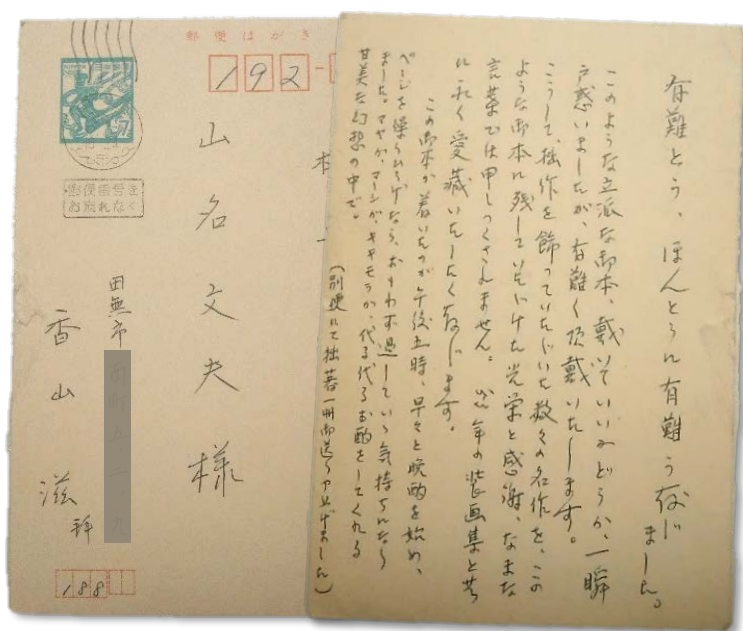 郵便はがき
192-
7
郵便番号を
お忘れなく
山名文夫様
田無市
香山滋
拝
188
有難とう、ほんとうに有難う存じ
ました。
このような立派な御本、戴いていいかどうか、一瞬
戸惑いましたが、有難く頂戴いたします。
こうして、拙作を飾っていただいた数々の名作を、この
ような御本に残していただけた光栄と感謝、なまな
言葉では申しつくされません。 年の装画集と共
に永く愛蔵いたしたく存じます。
この御本が着いたのが午後五時、早々と晩酌を始め、
ページを繰りひろげながら、おもわず過して 気持ちになり
ました。マヤが、 キキモラが、代る代るお酌をしてくれる
甘美な幻想の中で。
(別便にて拙著一冊御送り申上げました)